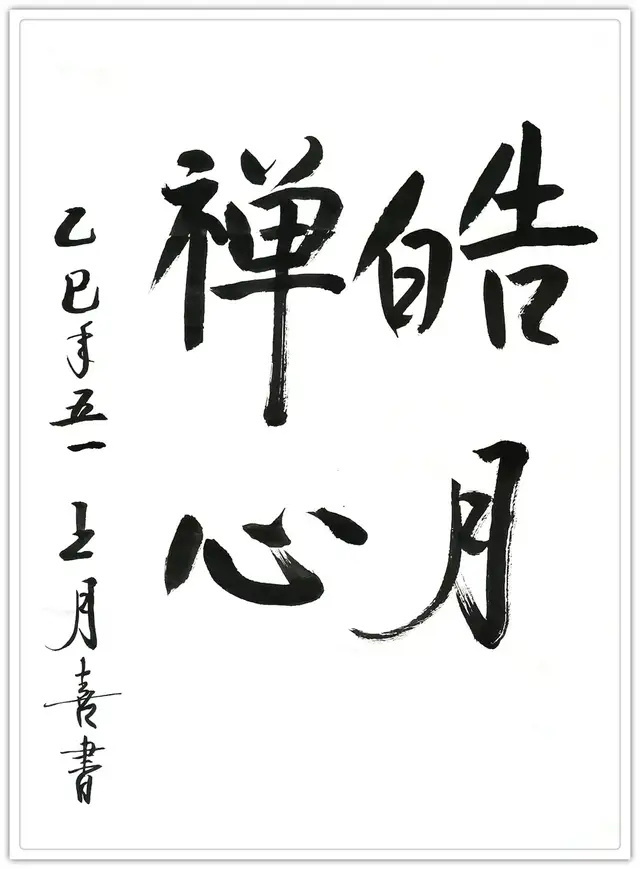 皓月
禅心
乙巳年五一 王月喜書